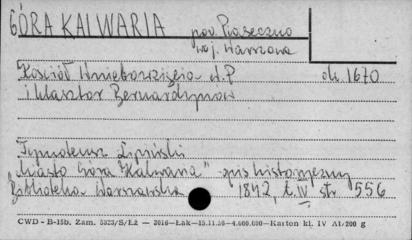 GÓRA KALWARIA pow. Piaseczno
woj. Warszawa
Kościół Wniebowzięcia N.P ok. 1670
i klasztor Bernardynów
Tymoteusz Lipiński
„Miasto Góra Kalwaria" - opis historyczny
Biblioteka Warszawska 1842, t. IV str 556
CWD - B-15b. Zam. 5323/S/Łż — 2016—Łak—15.11.56—4.000.000—Karton kl. IV A1/200 g